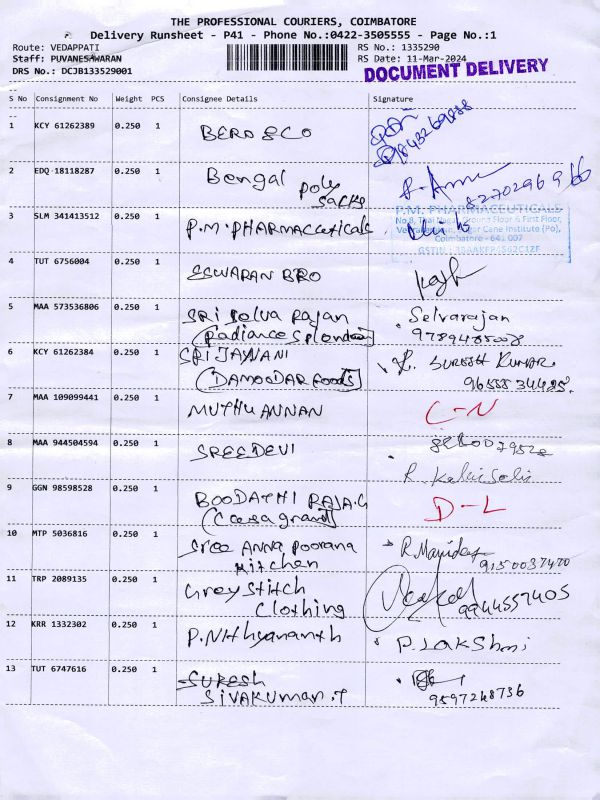 THE PROFESSIONAL COURIERS, COIMBATORE
Delivery Runsheet - P41 - Phone No.:0422-3505555 - Page No.:1
Route: VEDAPPATI
RS No.: 1335290
Staff: PUVANESAWARAN
RS Date: 11-Mar-2024
DRS No.: DCJB133529001
DOCUMENT DELIVERY
S No Consignment No Weight PCS Consignee Details Signature
1 KCY 61262389 0.250 1 BERO & CO
9843269888
2 EDQ 18118287 0.250 1 Bengal Poly
Sacks
8270296966
3 SLM 341413512 0.250 1 P.M. PHARMACeuticals
P.M. PHARMACEUTICALS
Coimbatore - 641 007
4 TUT 6756004 0.250 1 ESWARAN BRO
5 MAA 573536806 0.250 1 SRI Selva Rajan Selvarajan
(Radiance Splendour)
6 KCY 61262384 0.250 1 SRI JAYANI SURESH KUMAR
(DAMODAR Foods)
7 MAA 109099441 0.250 1 MUTHU ANNAN
8 MAA 944504594 0.250 1 SREEDEVI
9 GGN 98598528 0.250 1 BOODATHI RAJA.G D-L
(Casagrand)
10 MTP 5036816 0.250 1 Sree Anna Poorana
Kitchen 9150037470
11 TRP 2089135 0.250 1 Grey Stitch
Clothing 9944557405
12 KRR 1332302 0.250 1 P.Nithyananth P.LAKShmi
13 TUT 6747616 0.250 1 Suresh
Sivakumar.T 9597248736